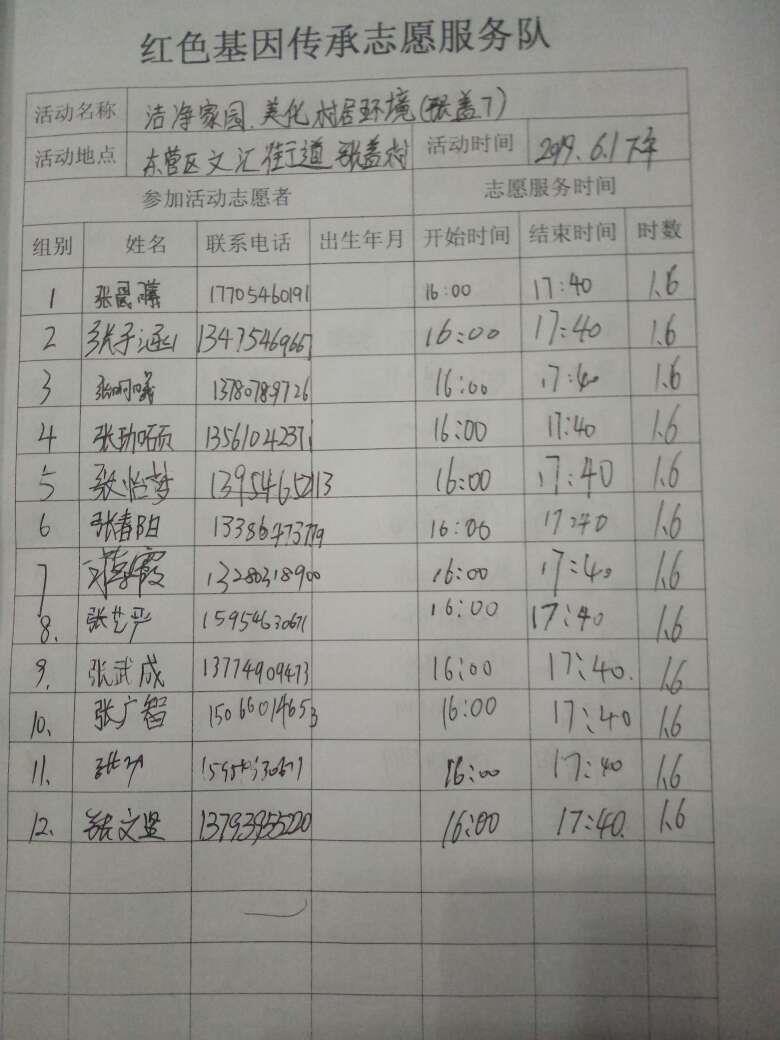 红色基因传承志愿服务队
活动名称 洁净家园.美化村居环境(张盖丁)
活动地点 东营区文汇街道张盖村 活动时间 2019.6.1下午
参加活动志愿者 志愿服务时间
组别 姓名 联系电话 出生年月 开始时间 结束时间 时数
1 张晨曦 17705460191 16:00 17:40 1.6
2 张子涵 13475469667 16:00 17:40 1.6
3 13780789726 16:00 17:40 1.6
4 张珈硕 13561042371 16:00 17:40 1.6
5 张怡梦 13954652113 16:00 17:40 1.6
6 张春阳 16:00 17:40 1.6
7 13280318900 16:00 17:40 1.6
8. 张艺严 15954630671 16:00 17:40 1.6
9. 张武成 13774909473 16:00 17:40. 1.6
10. 张广智 15066014653 16:00 17:40 1.6
11. 16:00 17:40 1.6
12. 张文坚 13793955220 16:00 17:40. 1.6